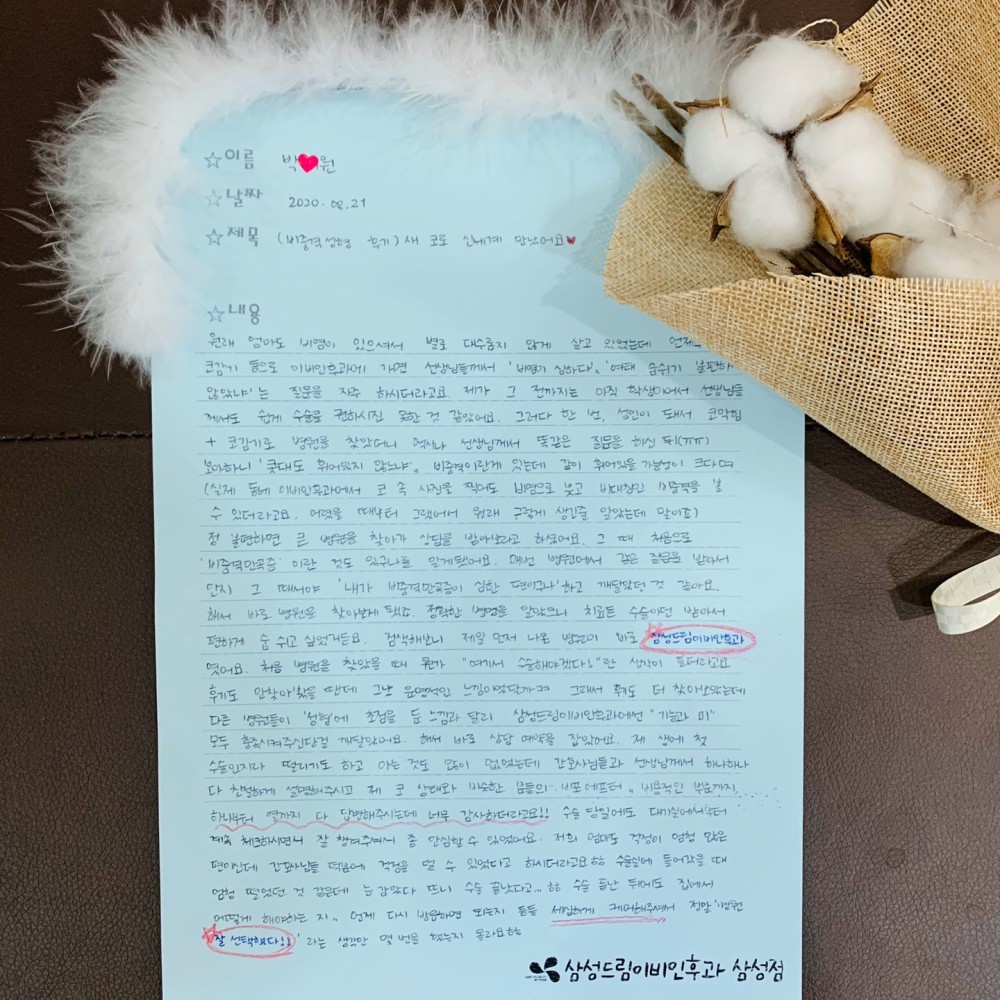 ☆이름 박♥원
☆날짜 2020. 08. 21
☆제목 (비중격성형 후기) 새 코로 신세계 만났어요♥
☆내용
원래 엄마도 비염이 있으셔서 별로 대수롭지 않게 살고 있었는데 언제
코감기 등으로 이비인후과에 가면 선생님들께서 '비염이 심하다', '여태 숨쉬기 불편하
않았냐'는 질문을 자주 하시더라고요. 제가 그 전까지는 아직 학생이어서 선생님들
께서도 쉽게 수술을 권하시진 못한 것 같았어요. 그러다 한 번, 성인이 돼서 코막힘
+ 코감기로 병원을 찾았더니 역시나 선생님께서 똑같은 질문을 하신 뒤(ㅠㅠ)
보아하니 '콧대도 휘어있지 않느냐', 비중격이란게 있는데 같이 휘어있을 가능성이 크다며
(실제 동네 이비인후과에서 코 속 사진을 찍어도 비염으로 붓고 비대칭인 비중격을 볼
수 있더라고요. 어렸을 때부터 그랬어서 원래 그렇게 생긴줄 알았는데 말이죠)
정 불편하면 큰 병원을 찾아가 상담을 받아보라고 하셨어요. 그 때 처음으로
'비중격만곡증' 이란 것도 있구나를 알게됐어요. 매번 병원에서 같은 질문을 받아서
단지 그 때서야 '내가 비중격만곡증이 심한 편이구나'하고 깨달았던 것 같아요.
해서 바로 병원을 찾아보게 됐죠. 정확한 병명을 알았으니 치료든 수술이던 받아서
편하게 숨 쉬고 싶었거든요. 검색해보니 제일 먼저 나온 병원이 바로 삼성드림이비인후과
였어요. 처음 병원을 찾았을 때 뭔가 "여기서 수술해야겠다!"란 생각이 들더라고요
후기도 안찾아봤을 땐데 그냥 운명적인 느낌이었달까며 그래서 후기도 더 찾아보았는데
다른 병원들이 '성형'에 초점을 둔 느낌과 달리 삼성드림이비인후과에선 "기능과 미"
모두 충족시켜주신단걸 깨달았어요. 해서 바로 상담 예약을 잡았어요. 제 생에 첫
수술인지라 떨리기도 하고 아는 것도 많이 없었는데 간호사님들과 선생님께서 하나하나
다 친절하게 설명해주시고 제 코 상태와 비슷한 분들의 비포에프터, 비용적인 부분까지,
하나부터 열까지 다 답변해주시는데 너무 감사하더라고요!! 수술 당일에도 대기실에서부터
계속 체크하시면서 잘 챙겨주셔서 좀 안심할 수 있었어요. 저희 엄마도 걱정이 엄청 많은
편이신데 간호사님들 덕분에 걱정을 덜 수 있었다고 하시더라고요ㅎㅎ 수술실에 들어갔을 때
엄청 떨었던 것 같은데 눈 감았다 뜨니 수술 끝났다고... ㅎㅎ 수술 끝난 뒤에도 집에서
어떻게 해야하는 지, 언제 다시 방문하면 되는지 등등 세심하게 케어해주셔서 정말 '병원
잘 선택했다!!' 라는 생각만 몇 번을 했는지 몰라요ㅎㅎ
삼성드림이비인후과 삼성점